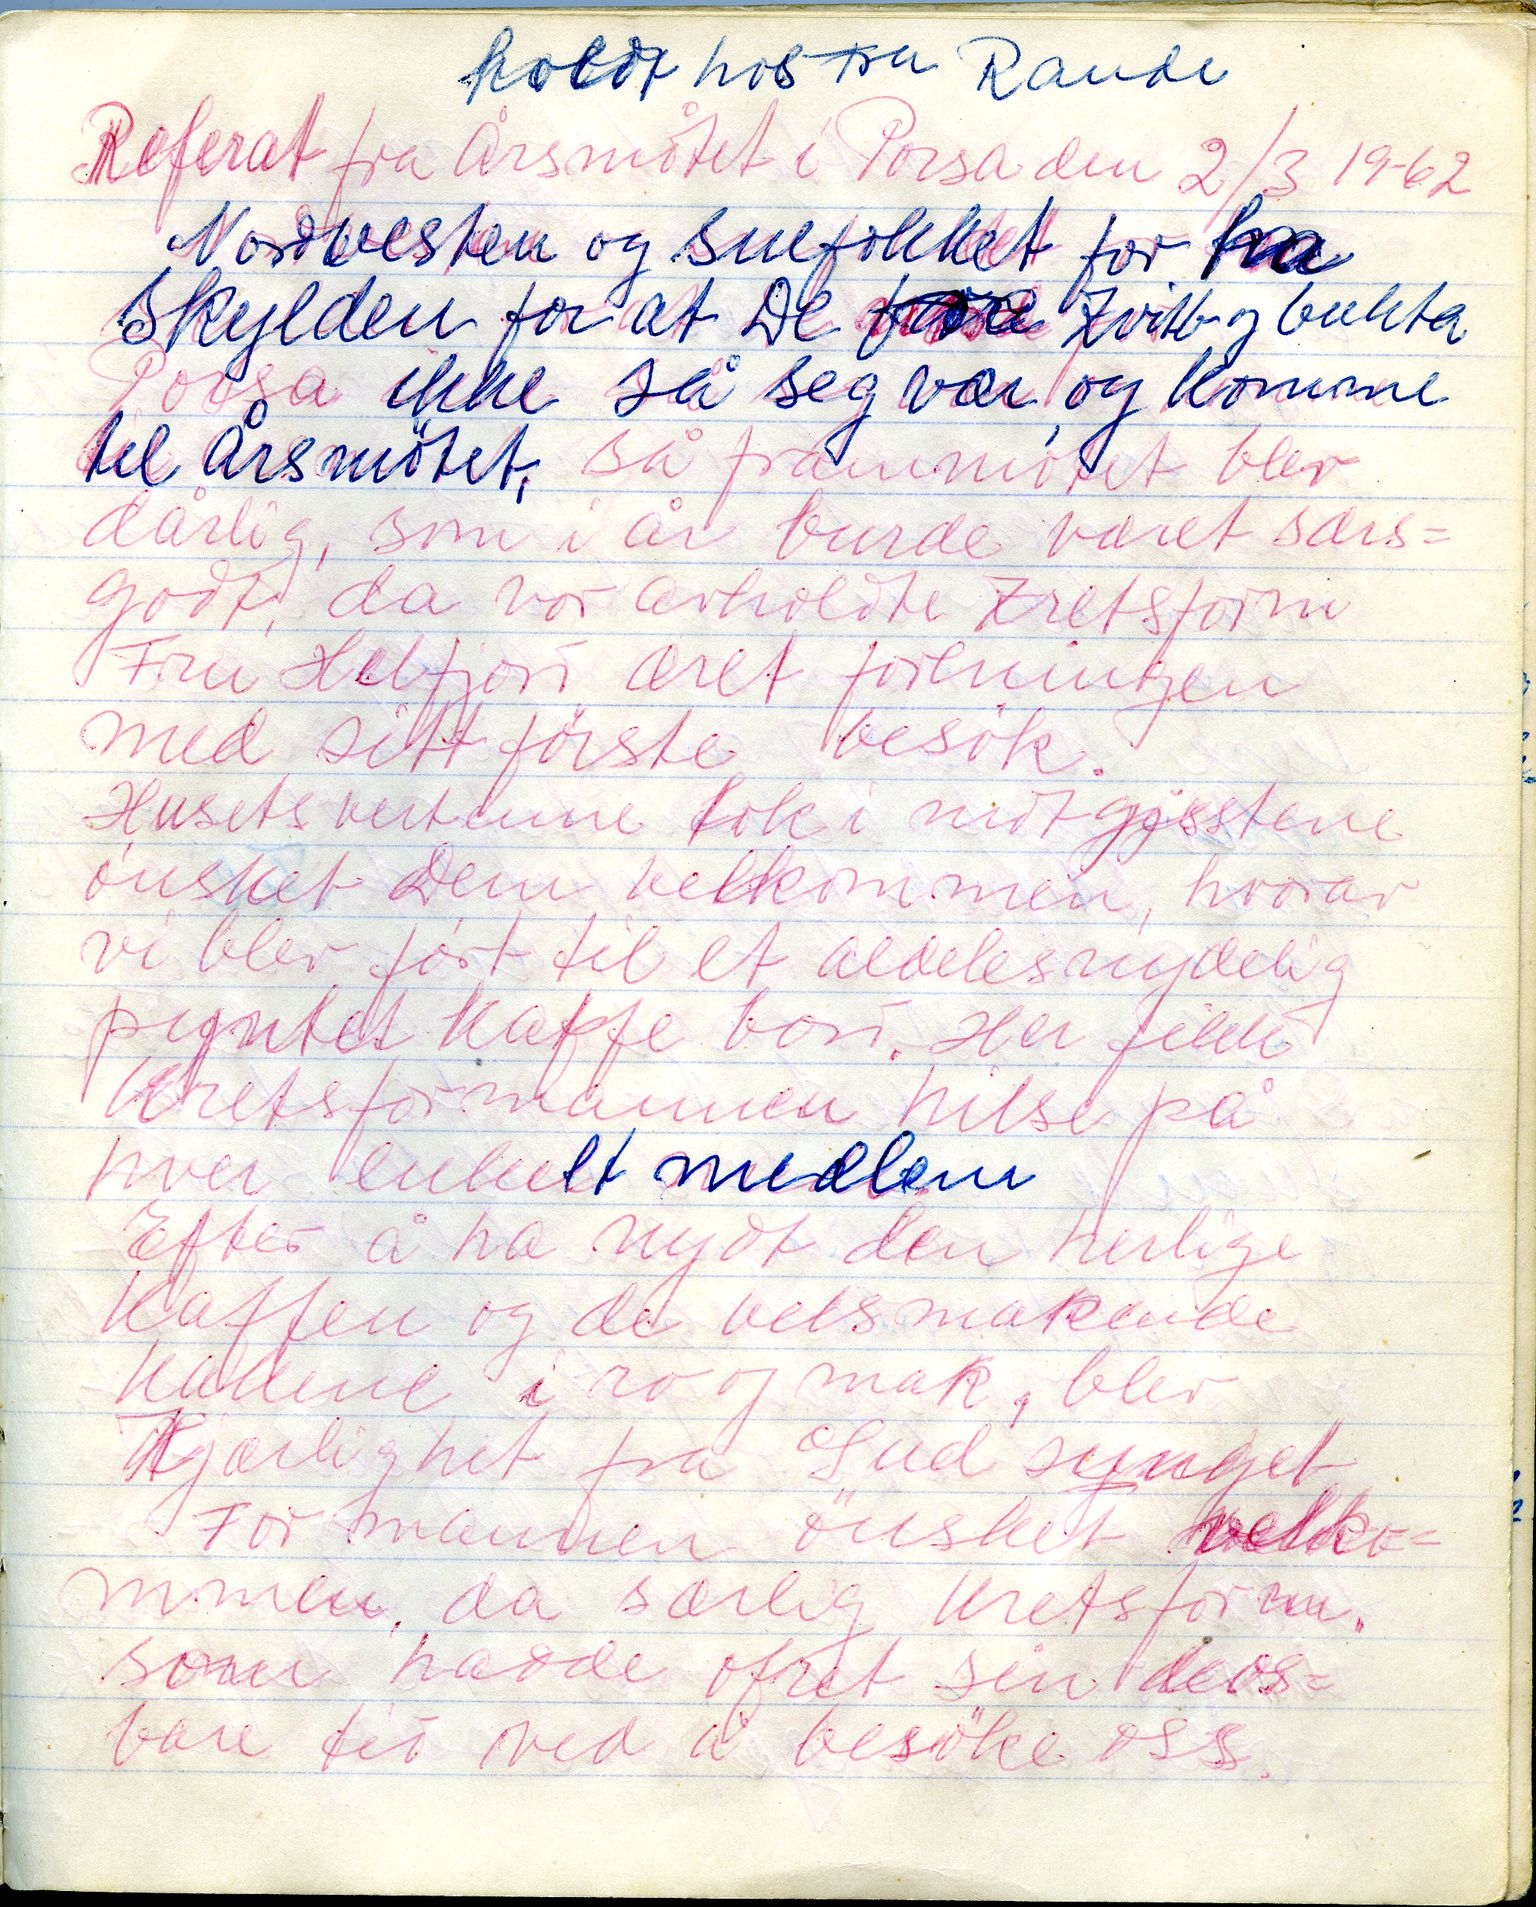 holdt hos Fru Rande
Referat fra Årsmötet i Porsa den 2/3 1962
Nordvesten og snefokket for ha
skylden for at De i og bukta
Porsa ikke så seg vær og komme
til Årsmötet, så frammötet blev
dårlig, som i år burde været særs=
godt, da vor ærholdte Kretsform
Fru Helfjord æret foreningen
med sitt förste besök.
Husets vertinne tok i mot gjesstene
önsket Dem velkommen, hvorav
vi blev fört til et aldelesnydelig
pyntet kaffe bord. Her fikk
Kretsformannen hilse på
hver enkelt medlem
Efter å ha nydt den herlige
Kaffen og de velsmakende
kakene i ro og mak, blev
Kjærlighet fra Gud synget
Formannen önsket velko=
mmen, da særlig Kretsform.
som hadde ofret sin deos=
bare tid ved å besöke oss.